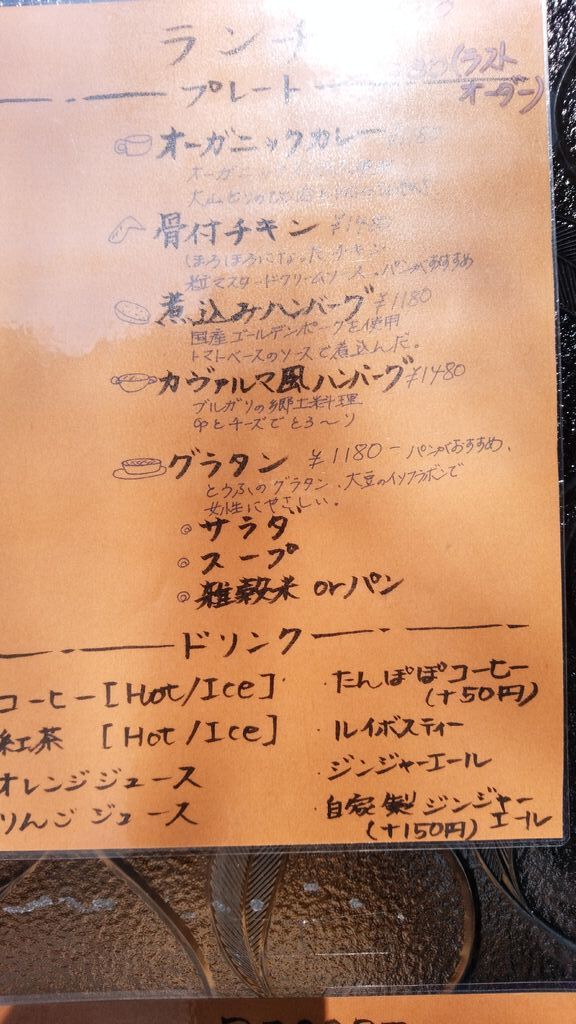 ランチ
(ラスト
オーダー)
プレート
オーガニックカレー
骨付チキン
ほろほろになったチキン
粒マスタードクリームソース・パンがおすすめ
煮込みハンバーグ ¥1180
国産ゴールデンポークを使用
トマトベースのソースで煮込んだ。
カヴァルマ風ハンバーグ ¥1480
ブルガリの郷土料理
卵とチーズでとろ〜り
グラタン ¥1180- パンがおすすめ、
とうふのグラタン、大豆のイソフラボンで
女性にやさしい。
◎サラダ
◎スープ
◎雑穀米 orパン
ドリンク
コーヒー[Hot/Ice]
紅茶 [Hot/Ice]
オレンジジュース
りんごジュース
・たんぽぽコーヒー
(+50円)
・ルイボスティー
・ジンジャーエール
・自家製ジンジャー
(+150円)エール